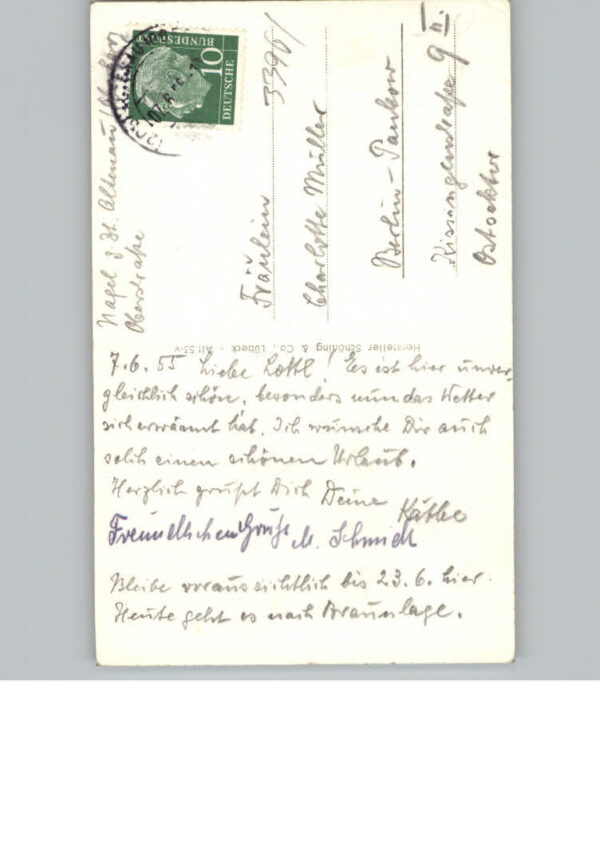 7.6.55 Liebe Lottl! Es ist hier unver-
gleichlich schön, besonders nun das Wetter
sich erwärmt hat. Ich wünsche Dir auch
solch einen schönen Urlaub.
Herzlich grüßt Dich Deine Käthe
Freundlichen Gruß M. Schmidt
Bleibe voraussichtlich bis 23.6. hier.
Heute geht es nach Braunlage.
Nagel z. Zt. Altenau
Oberstraße
Fräulein
Charlotte Müller
Berlin-Pankow
Kissingenstraße 9 II.
Ostsektor
Hersteller Schöning & Co., Lübeck - Alt 55-v
DEUTSCHE
BUNDESPOST
10